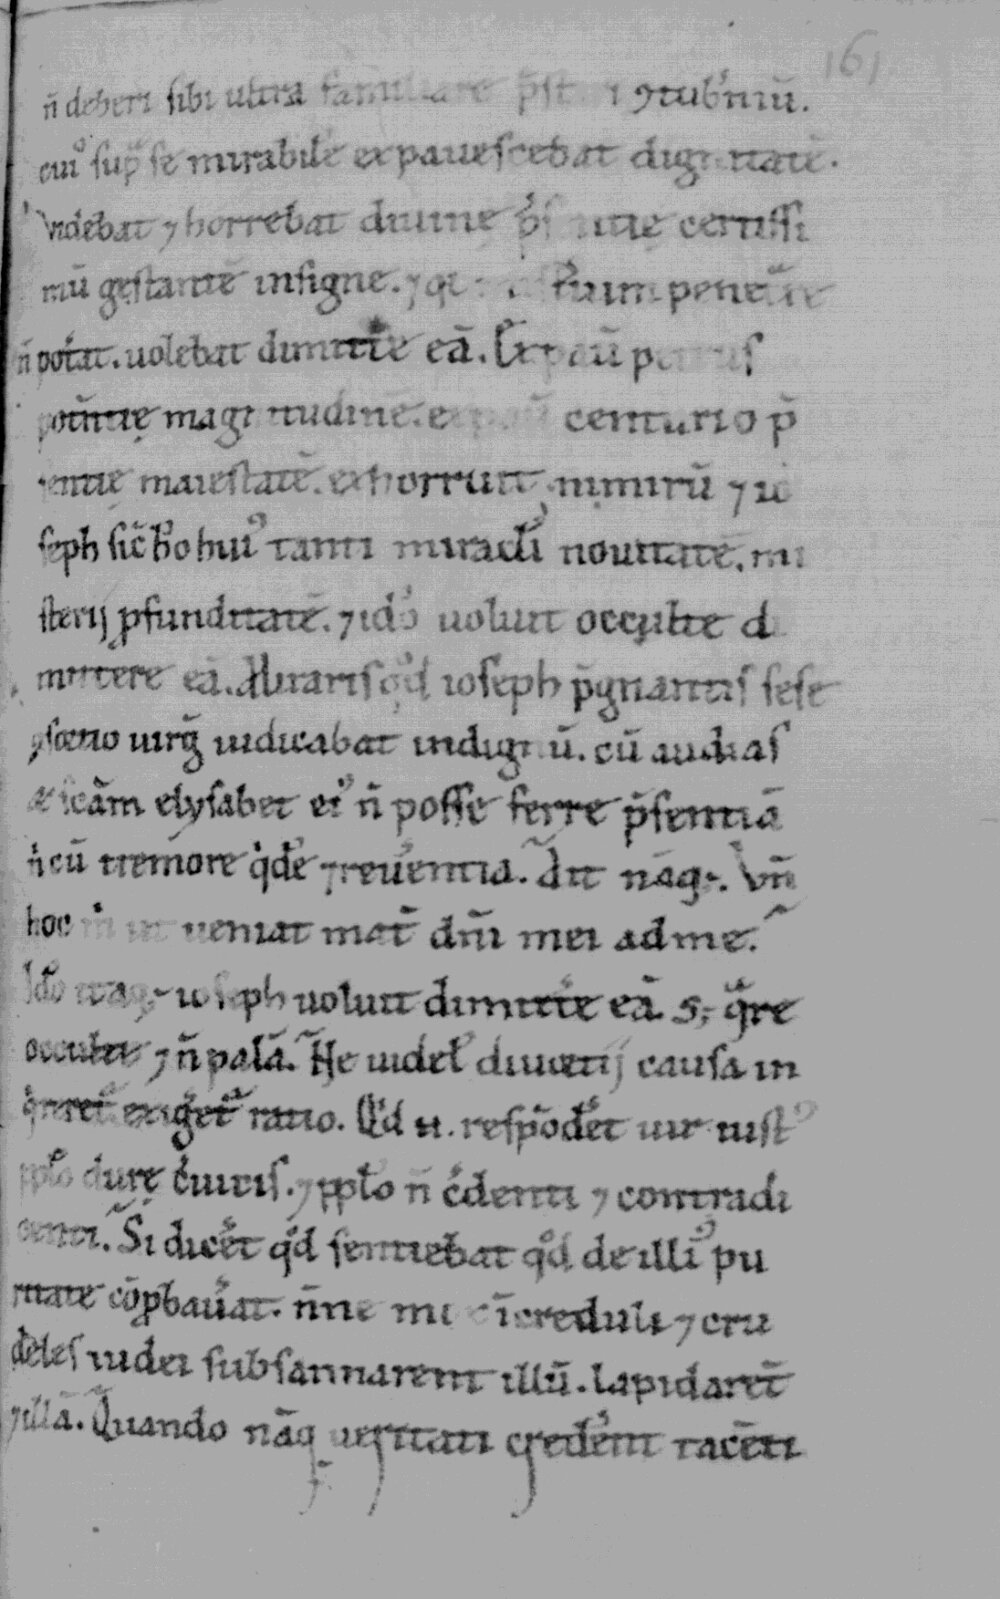 161
n̄ deberi sibi ultra familiare p̄st  i ꝯtub̾niū.
cui᷒ sup̄ se mirabile expauescebat dignitatē.
Videbat ⁊ horrebat diuine p̄s  tię certissi
mū gestantē insigne. ⁊ q̇   penet̾re
n̄ pot̾at. uolebat dimitt̾e eā. Expauit petrus
potn̄tię magnitudinē. expauit centurio p̄
sentię maiestatē. exhorruit nimirū ⁊ io
seph sic̄ hō hui᷒ tanti miraculi nouitatē. mi
sterij ꝓfunditatē. ⁊ idō uoluit occulte di
mittere eā. Miraris qd̾ ioseph p̄gnantis sese
ꝯsortio uirḡ iudicabat indignū. cū audias
& scām elysabet ei᷒ n̄ posse ferre p̄sentiā
n̄ cū tremore qd̾e ⁊ reuerentia. Ait nāq;. Vn̄
hoc m̄ ut ueniat mat̄ dn̄i mei ad me.
Idō itaq; ioseph uoluit dimitt̾e eā. S; q̄re
occulte ⁊ n̄ palā. Ne uidel̾ diuortij causa in
q̇reret᷑. exiḡet᷑ ratio. Qd̾ n̄. respōdet̾ uir iust᷒
pplo durę c̾uicis. ⁊ pplo n̄ c̾denti ⁊ contradi
centi. Si dicet̾ qd̾ sentiebat qd̾ de illi᷒ pu
ritate cōꝓbauat̾. n̄ne mox īcreduli ⁊ cru
deles iudei subsannarent illū. lapidarent
⁊ illā. Quando nāq ueritati crederent tacenti